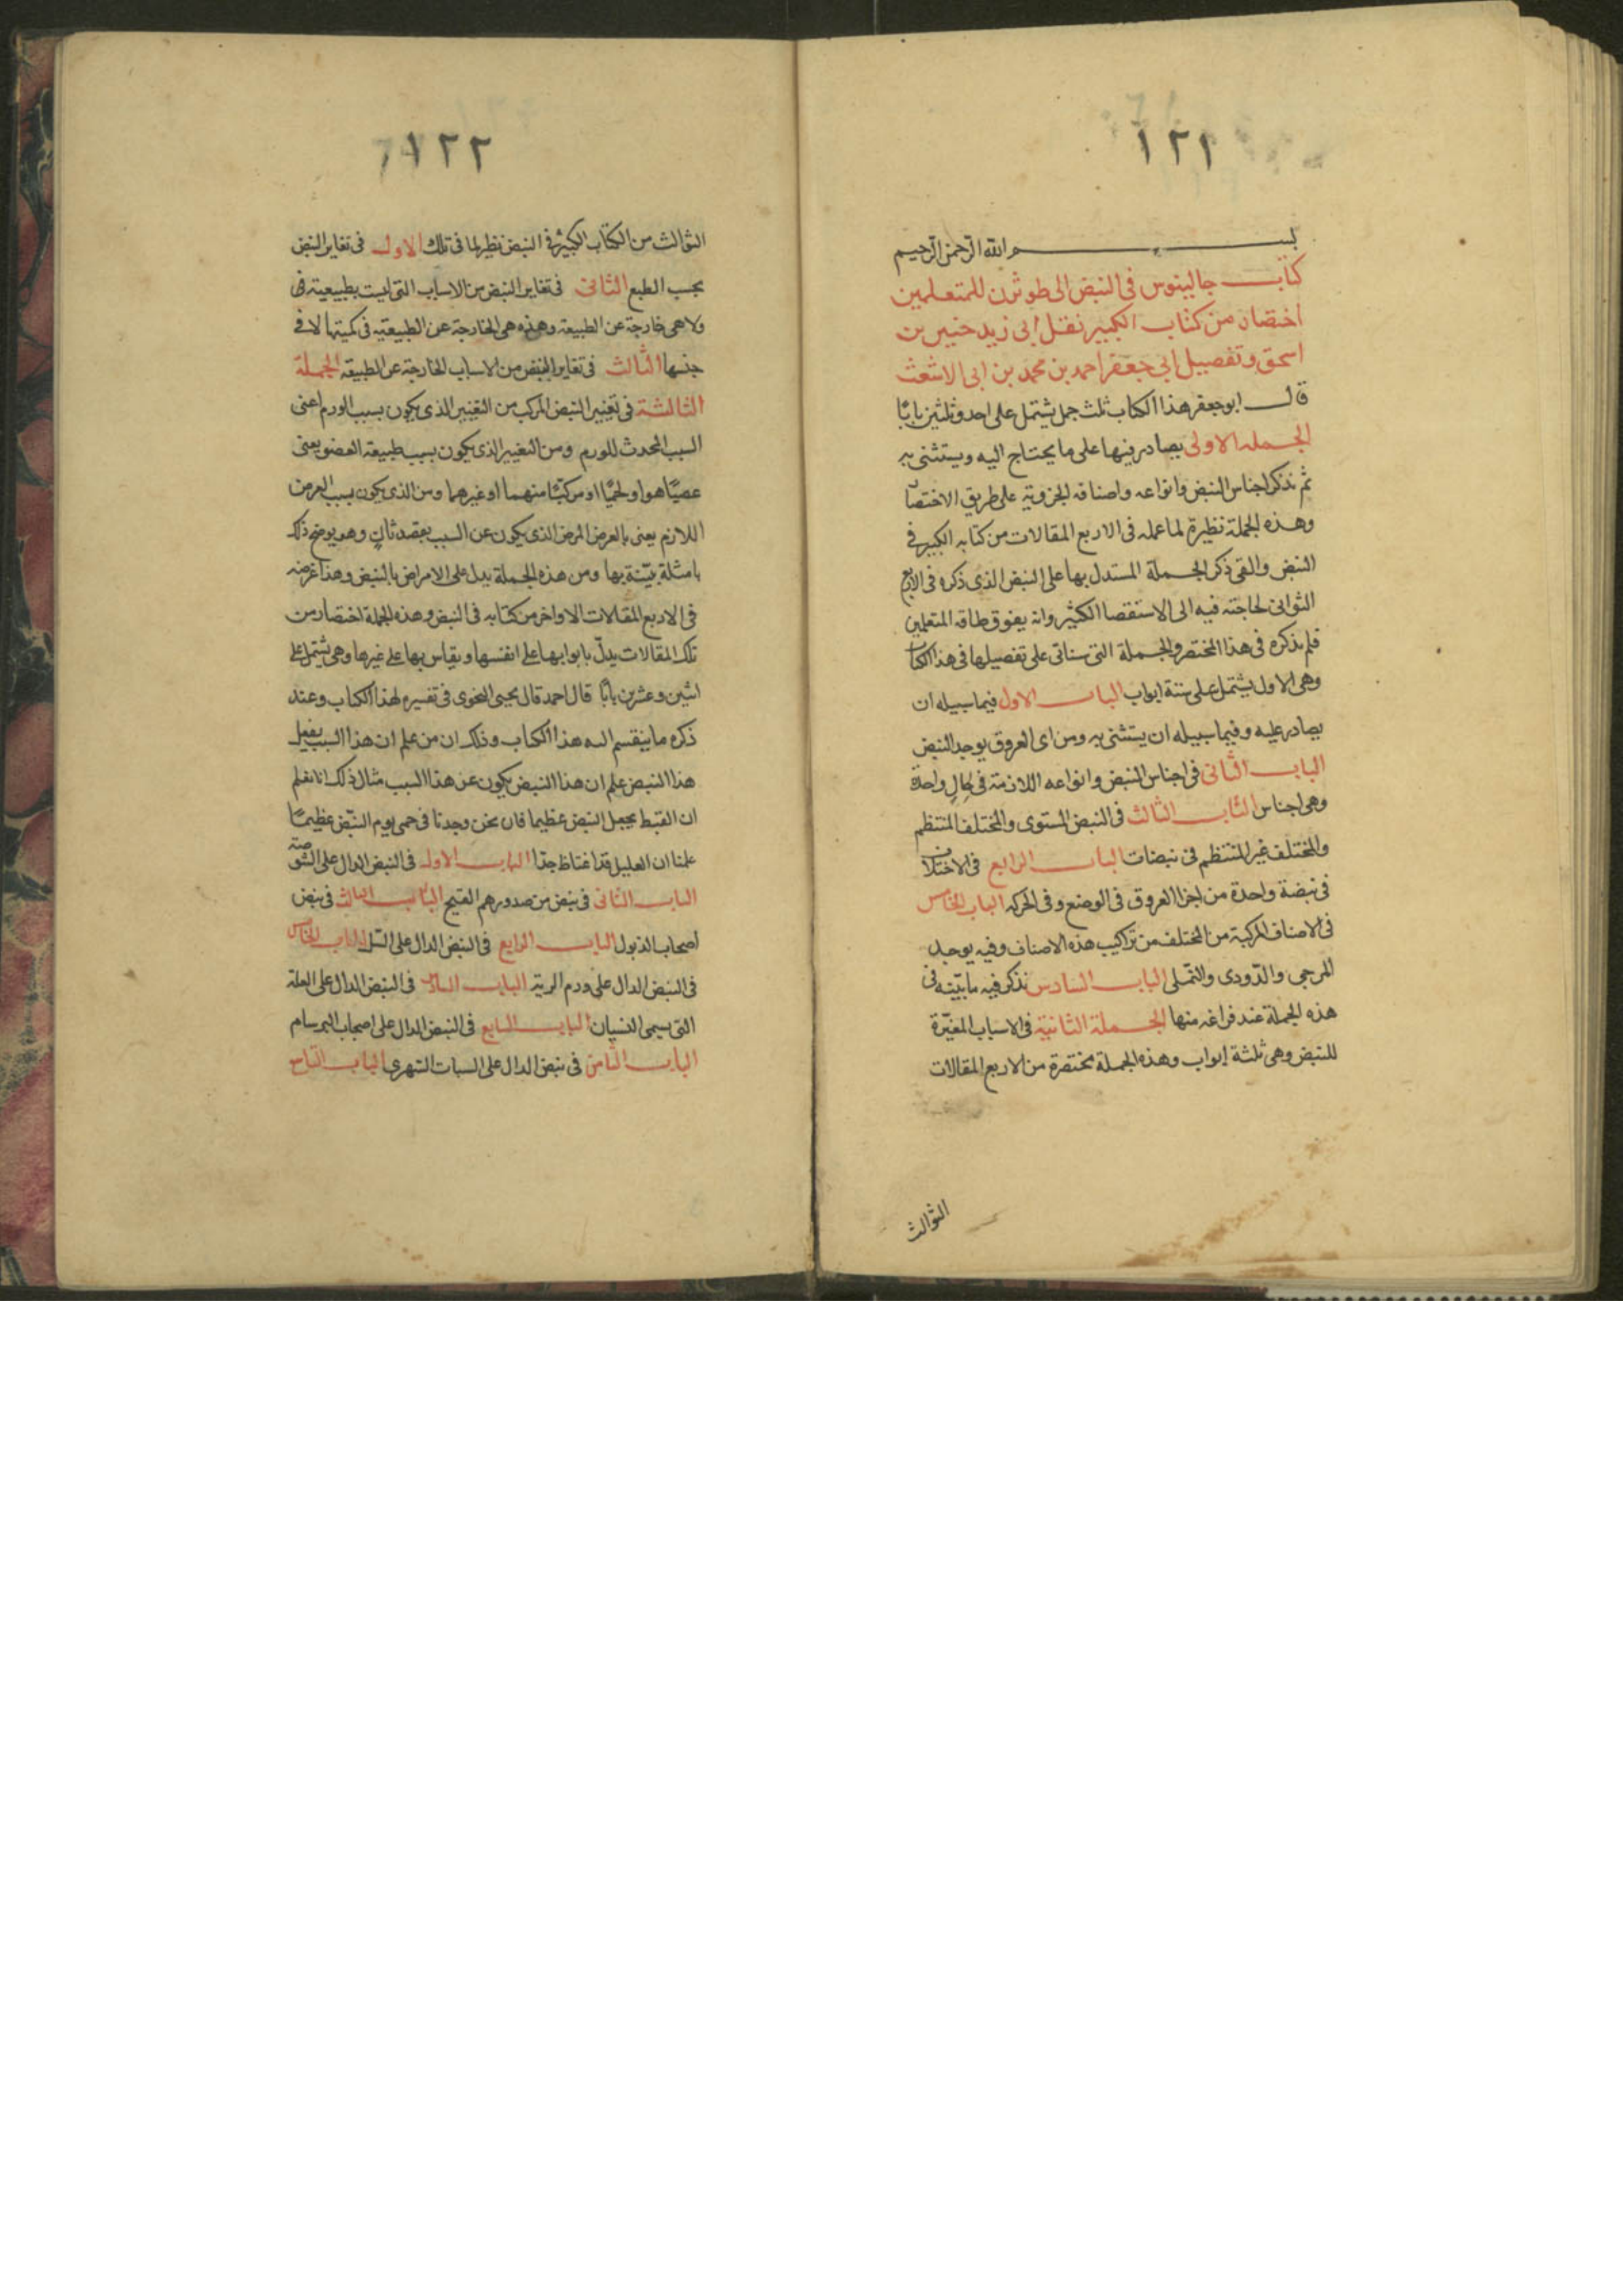 ١٢١
بسم الله الرحمن الرحيم
كتاب جالينوس فى النبض الى طوثرن للمتعلمين
اختصار من كتاب الكبير نقل ابى زيد حنين بن
اسحق وتفصيل ابى جعفر احمد بن محمد بن ابى الاشعث
قال ابو جعفر هذا الكتاب ثلث جمل يشتمل على احد وثلثين بابًا
الجمله الاولى يصادر فيها على ما يحتاج اليه ويستثنى به
ثم يذكر اجناس النبض وانواعه واصنافه الجزوية على طريق الاختصا
وهذه الجملة نظيرة لما عمله فى الاربع المقالات من كتابه الكبير فى
النبض والقى ذكر الجملة المستدل بها على النبض الذى ذكره فى الاربع
الثوانى لحاجته فيه الى الاستقصا الكثير وانه يفوق طاقه المتعلمين
فلم يذكره فى هذا المختصر والجملة التى سناتى على تفصيلها فى هذا الكتاب
وهى الاول يشتمل على ستة ابواب الباب الاول فيما سبيله ان
يصادر عليه وفيما سبيله ان يستثنى به ومن اى العروق يوجد النبض
الباب الثانى فى اجناس النبض وانواعه اللازمة فى حالٍ واحدة
وهى اجناس الباب الثالث فى النبض المستوى والمختلف المنتظم
والمختلف غير المنتظم فى نبضات الباب الرابع فى الاختلاف
فى نبضة واحدة من اجزا العروق فى الوضع وفى الحركه الباب الخامس
فى الاصناف المركبة من المختلف من تراكيب هذه الاصناف وفيه يوجد
المرجى والدّودى والنّملى الباب السادس نذكر فيه ما بيّنه فى
هذه الجملة عند فراغه منها الجملة الثانية فى الاسباب المغيّرة
للنبض وهى ثلثة ابواب وهذه الجملة مختصرة من الاربع المقالات
الثوالث
١٢٢
الثوالث من الكتاب الكبير فى النبض نظير لما فى تلك الاول فى تغاير النبض
بحسب الطبع الثانى فى تغاير النبض من الاسباب التى ليست بطبيعية
ولا هى خارجة عن الطبيعة وهذه هى الخارجة عن الطبيعية فى كميتها لا فى
جنسها الثالث فى تغاير النبض من الاسباب الخارجة عن الطبيعه الجملة
الثالثة فى تغيير النبض المركب من التغيير الذى يكون بسبب الورم اعنى
السبب المحدث للورم ومن التغيير الذى يكون بسبب طبيعة العضو يعنى
عصبيًا هو او لحميًا او مركبًا منهما او غيرهما ومن الذى يكون بسبب العرض
اللازم يعنى بالعرض المرض الذى يكون عن السبب بقصد ثانٍ وهو يوضح ذلك
بامثلة بيّنة بها ومن هذه الجملة يدل على الامراض بالنبض وهذا غرضه
فى الاربع المقالات الاواخر من كتابه فى النبض وهذه الجملة اختصار من
تلك المقالات يدلّ بابوابها على انفسها ويقاس بها على غيرها وهى يشتمل على
اثنين وعشرين بابًا قال احمد قال يحيى النحوى فى تفسيره لهذا الكتاب وعند
ذكره ما ينقسم اليه هذا الكتاب وذلك ان من علم ان هذا السبب يفعل
هذا النبض علم ان هذا النبض يكون عن هذا السبب مثال ذلك انا نعلم
ان الغيظ يجعل النبض عظيما فان نحن وجدنا فى حمى يوم النبّض عظيمًا
علمنا ان العليل قد اغتاظ جدّا الباب الاول فى النبض الدال على الشوصة
الباب الثانى فى نبض من صدورهم القيح الباب الثالث فى نبض
اصحاب الذبول الباب الرابع فى النبض الدال على السّل الباب الخامس
فى النبض الدال على ورم الرية الباب السادس فى النبض الدال على العلة
التى يسمى النسيان الباب السابع فى النبض الدال على اصحاب البرسام
الباب الثامن فى نبض الدال على السبات السهرى الباب التاسع